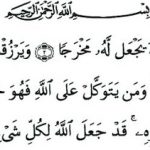 بِسْمِ ٱللَّهِ ٱلرَّحْمَٰنِ ٱلرَّحِيمِ
يَجْعَل لَّهُۥ مَخْرَجًا ۝٢ وَيَرْزُقْ
وَمَن يَتَوَكَّلْ عَلَى ٱللَّهِ فَهُوَ حَ
رِهِۦ ۚ قَدْ جَعَلَ ٱللَّهُ لِكُلِّ شَىْ